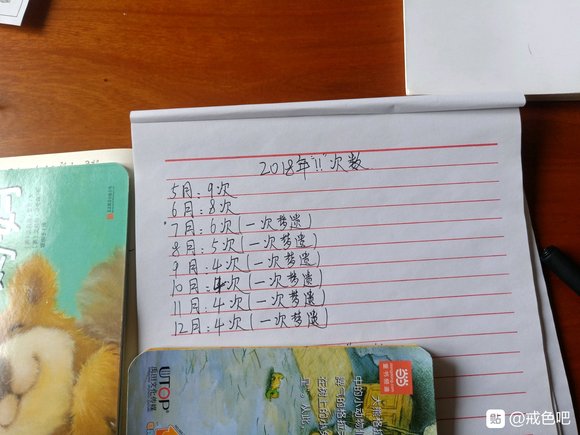 2018年"!!"次数
5月:9次
6月:8次
7月:6次(一次梦遗)
8月:5次(一次梦遗)
9月:4次(一次梦遗)
10月:4次(一次梦遗)
11月:4次(一次梦遗)
12月:4次(一次梦遗)
UTOP
当当
童书频道
大熊格
中的小动物
贴 @戒色吧